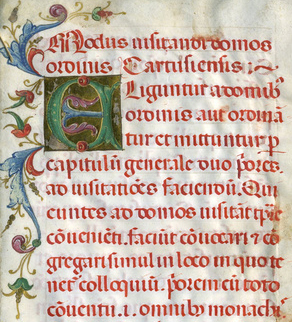 Modus uisitandi domos
Ordinis Cartusiensis
ELiguntur a domib⁹
ordinis aut ordinā
tur et mittuntur p
capitulū generale duo p̄ores.
ad uisitatiōes faciendū. Qui
euntes ad domos uisitāt tp̄e
cōueniēti. faciūt cōuocari ⁊ cō
gregari simul in loco in quo te
net̉ colloquiū. p̄orem cū toto
cōuentu .i. omnib⁹ monachi⁹